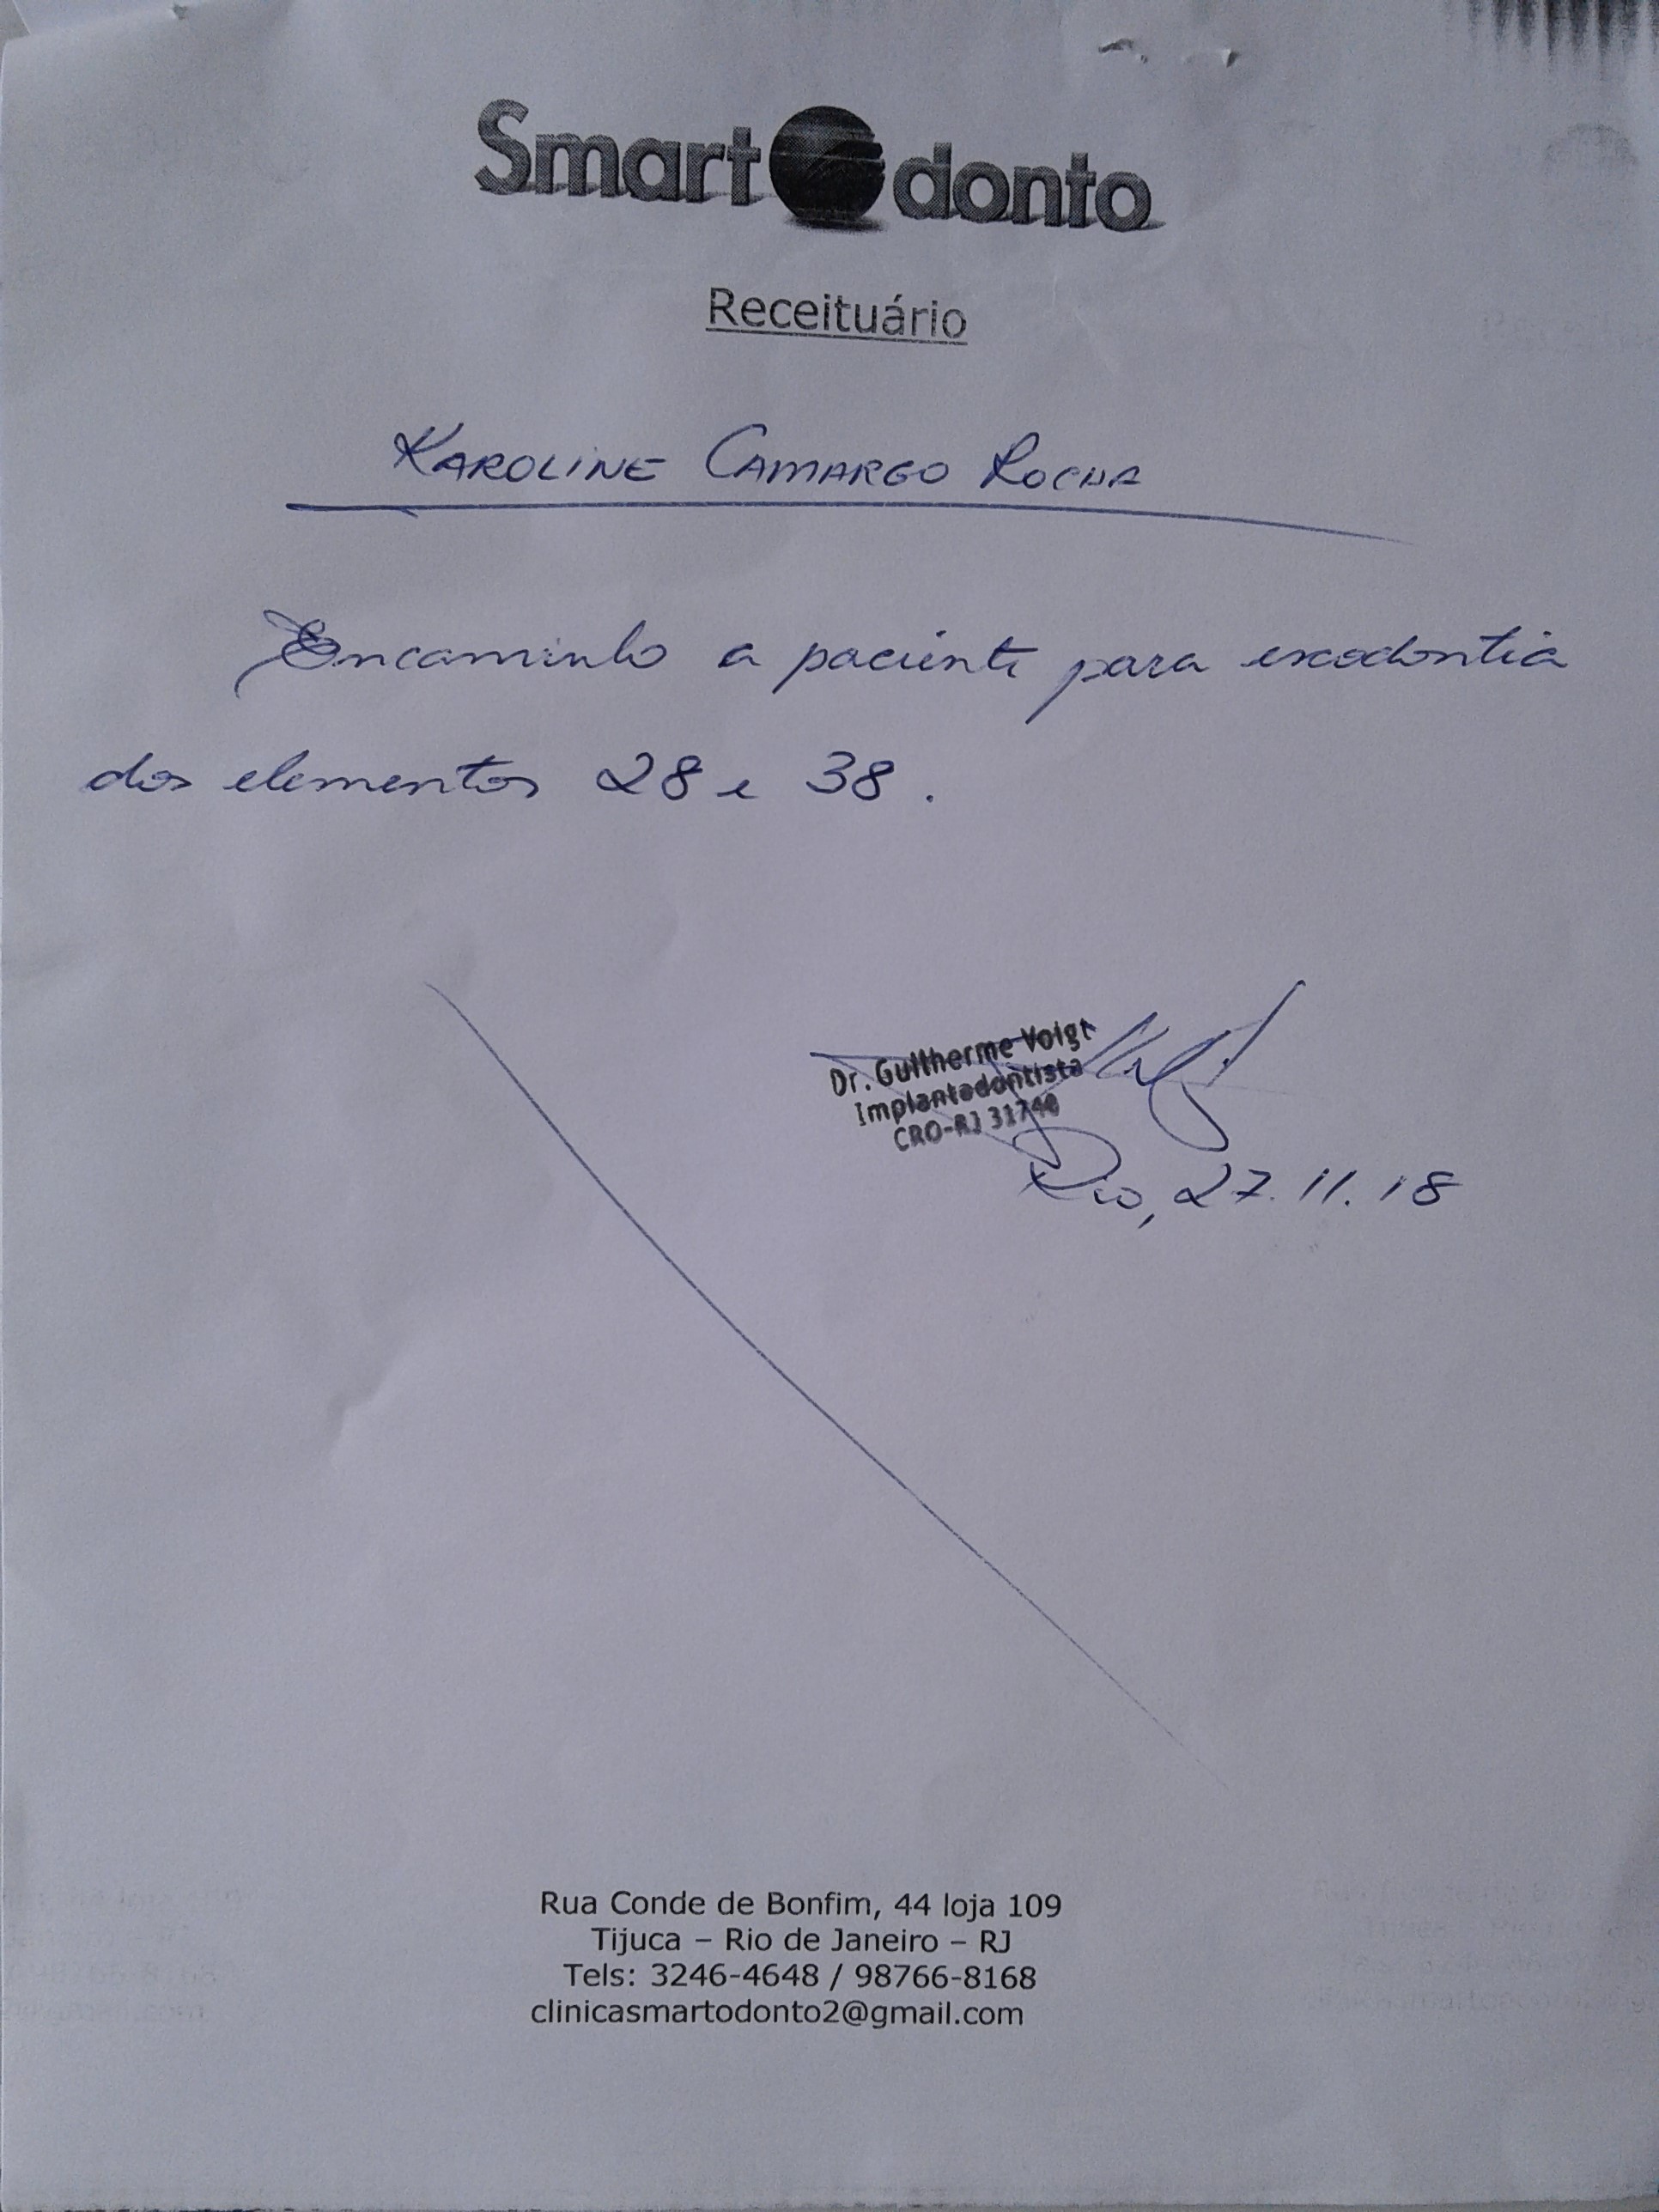 Smart Odonto
Receituário
KAROLINE CAMARGO ROCHA
Encaminho a paciente para exodontia
dos elementos 28 e 38.
Dr. Guilherme Voigt
Implantodontista
CRO-RJ 31740
Rio, 27.11.18
Rua Conde de Bonfim, 44 loja 109
Tijuca – Rio de Janeiro – RJ
Tels: 3246-4648 / 98766-8168
clinicasmartodonto2@gmail.com